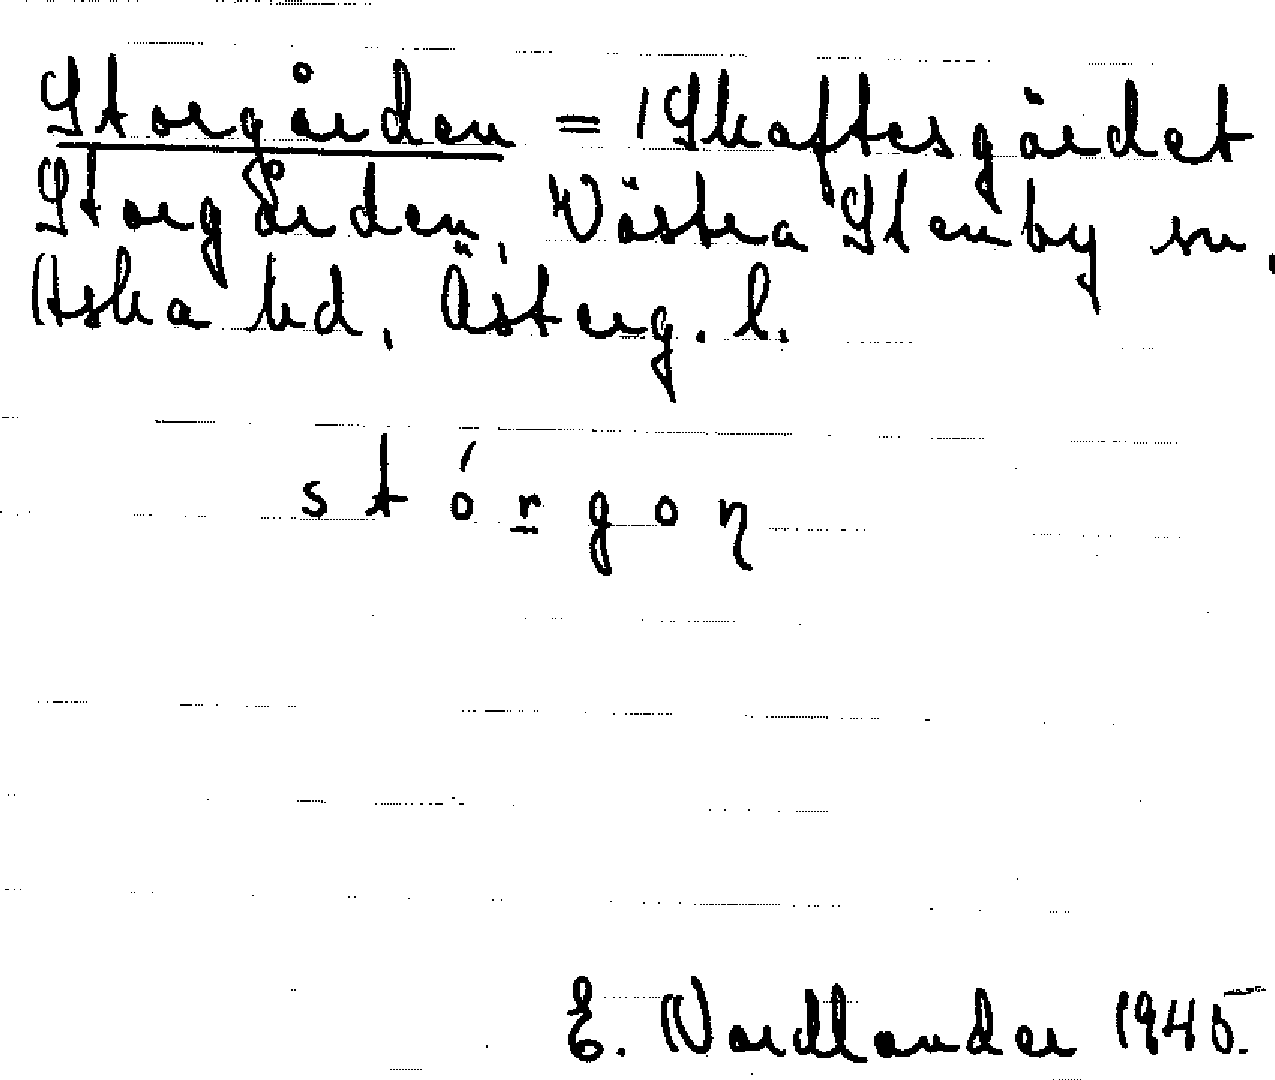 Storgården = 1 Skaftesgärdet
Storgården, Västra Stenby sn,
Aska hd, Österg. l.
stórgoŋ
E. Nordlander 1945